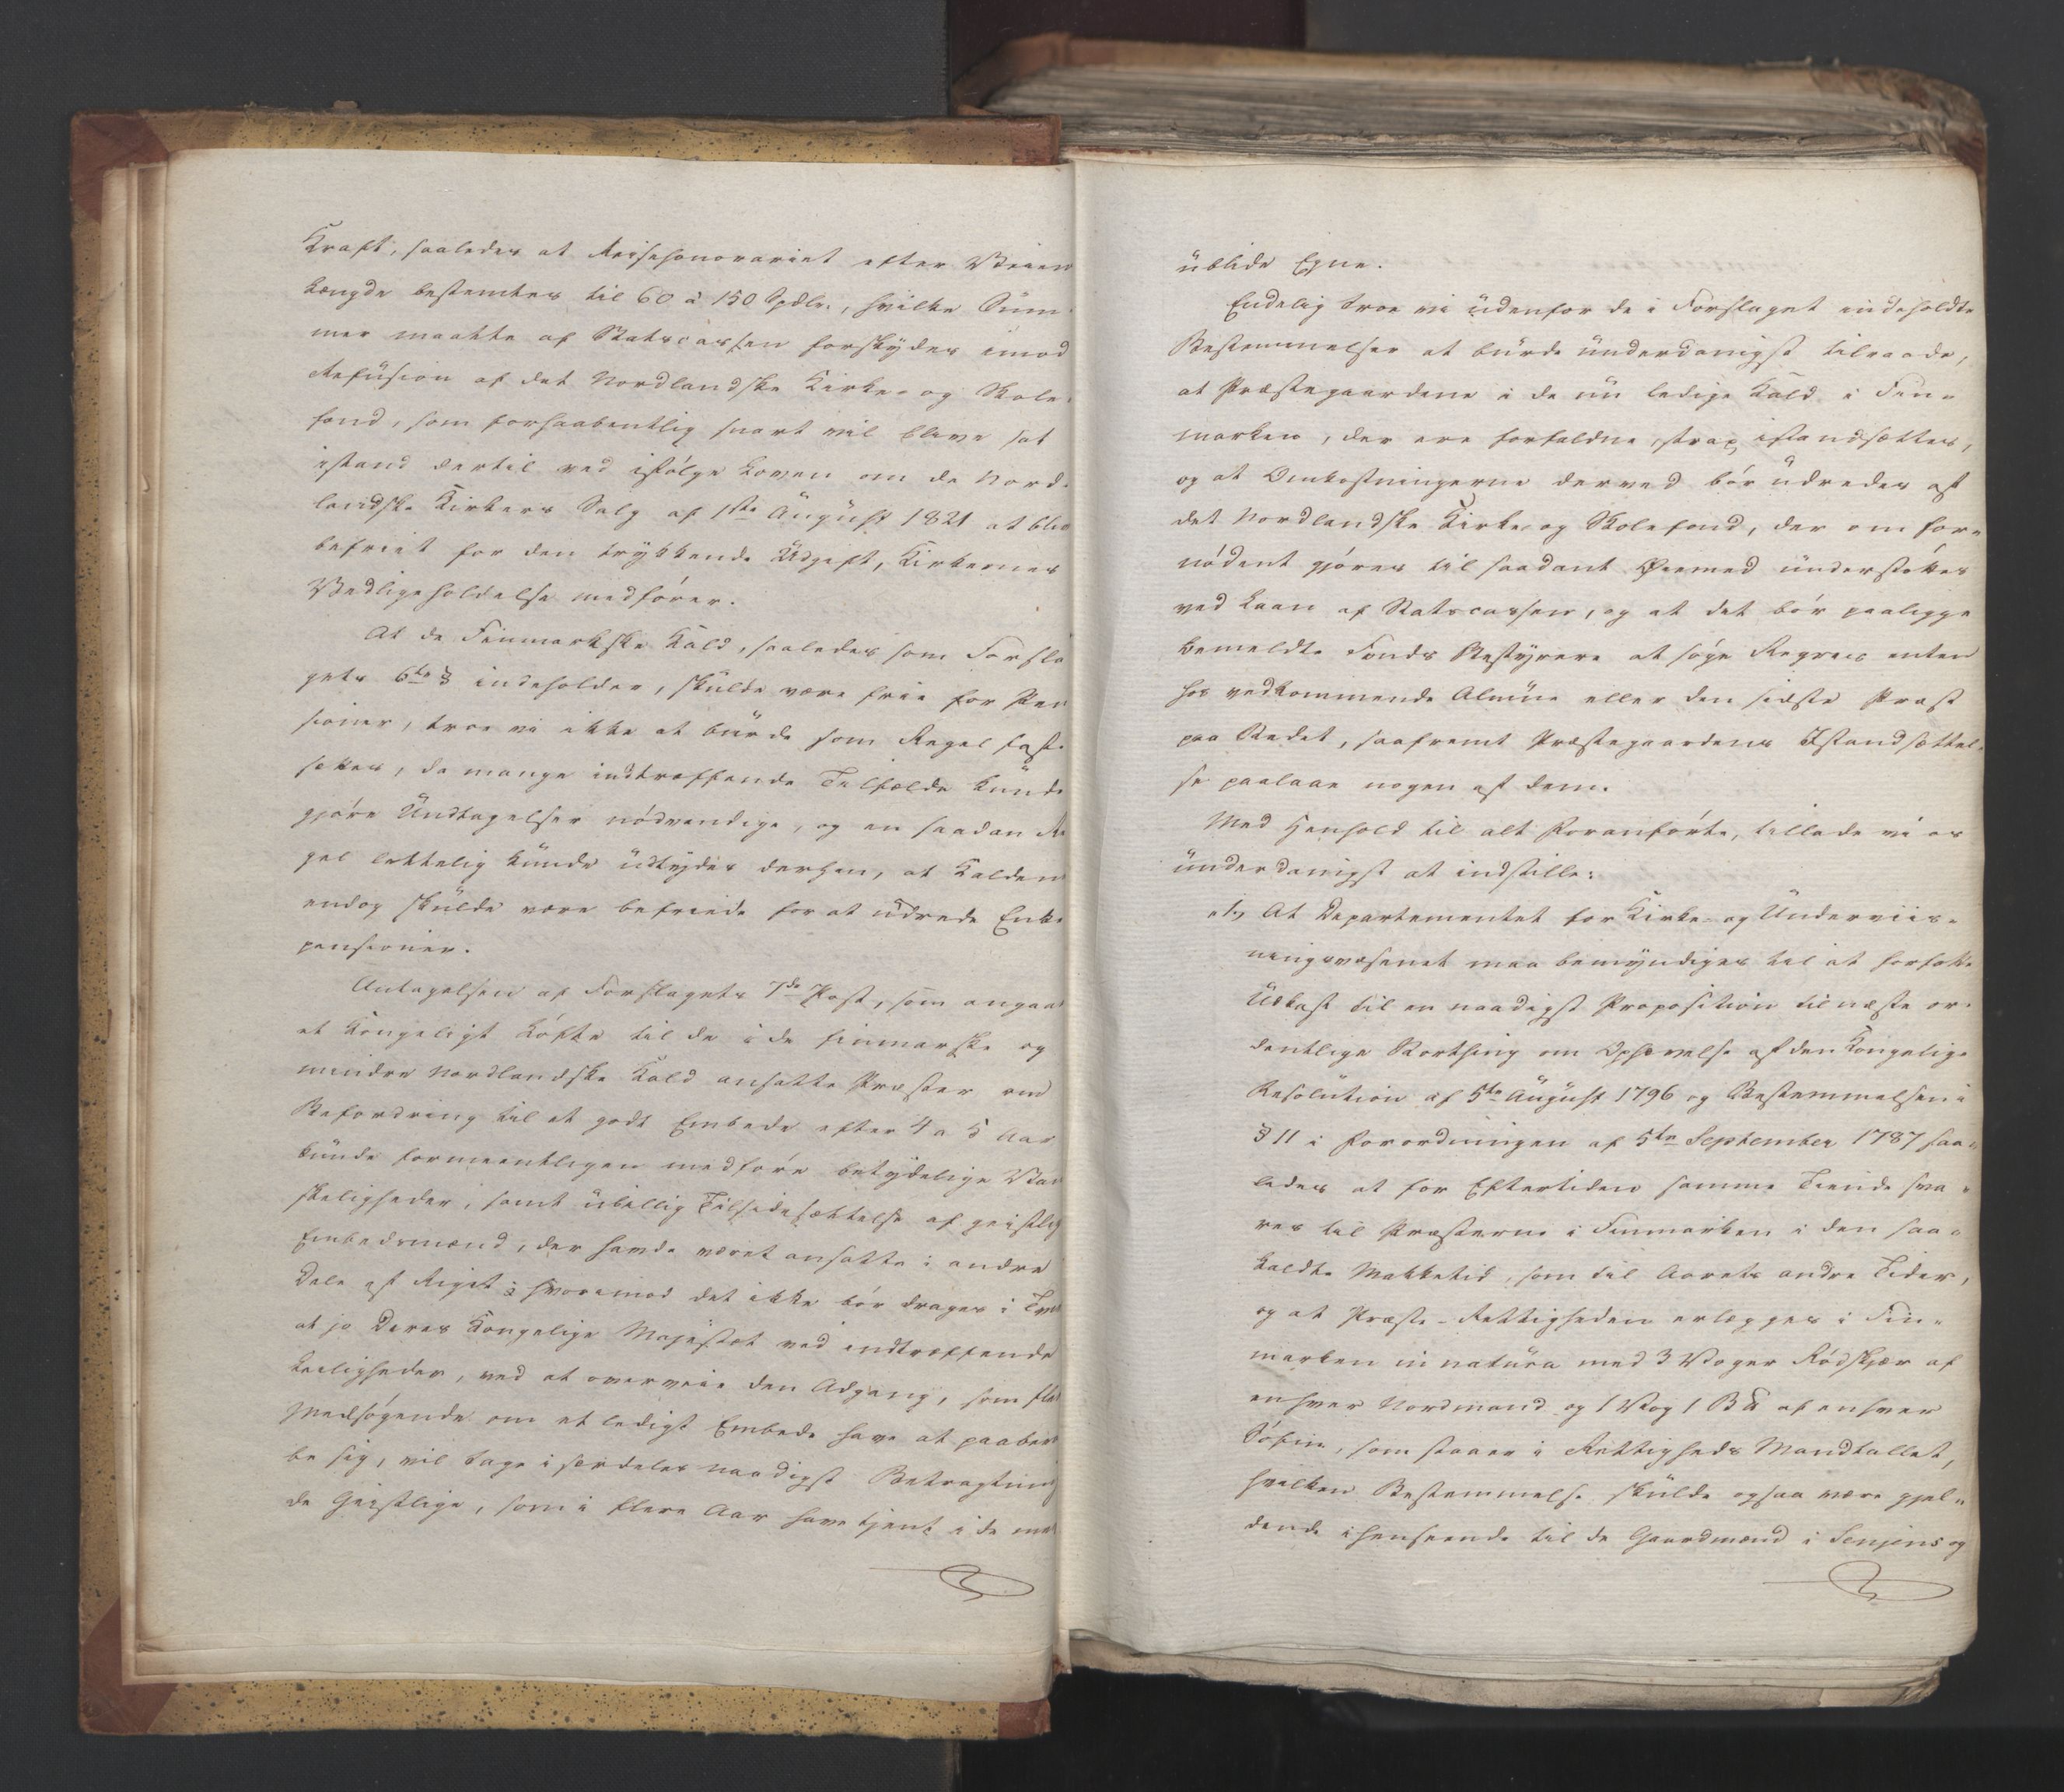 Kraft, saaledes at Reisehonorariet efter Veiens
Længde bestemtes til 60 à 150 Spdlr., hvilke Sum-
mer maatte af Statscassen forskydes imod
Refusion af det Nordlandske Kirke- og Skole-
fond, som forhaabentlig snart vil blive sat
istand dertil ved ifølge Loven om de Nord-
landske Kirkers Salg af 1ste August 1821 at blive
befriet for den trykkende Udgift, Kirkernes
Vedligeholdelse medfører.
At de Finmarkske Kald, saaledes som Forsla
gets 6te § indeholder, skulde være frie for Pen
sioner, troe vi ikke at burde som Regel fast-
sættes, da mange indtræffende Tilfælde kunde
gjøre Undtagelser nødvendige, og en saadan Re
gel lettelig kunde udtydes derhen, at Kaldene
endog skulde være befriede for at udrede Enke
pensioner.
Antagelsen af Forslagets 7de Post, som angaaer
et Kongeligt Løfte til de i de finmarske og
mindre Nordlandske Kald ansatte Præster om
Befordring til et godt Embede efter 4 a 5 Aar
kunde formeentligen medføre betydelige Van
skeligheder, samt ubillig Tilsidesættelse af geistlige
Embedsmænd, der havde været ansatte i andre
Dele af Riget; hvorimod det ikke bør drages i Tvivl
at jo Deres Kongelige Majestæt ved indtræffende
Leiligheder, ved at overveie den Adgang, som flere
Medsøgende om et ledigt Embede have at paabe
be sig, vil tage i særdeles naadigst Betragtning
de Geistlige, som i flere Aar have tjent i de me
ublide Egne.
Endelig troe vi udenfor de i Forslaget indeholdte
Bestemmelser at burde underdanigst tilraade,
at Præstegaardene i de nu ledige Kald i Fin-
marken, der ere forfaldne, strax istandsættes,
og at Omkostningerne derved bør udredes af
det Nordlandske Kirke- og Skolefond, der om for-
nødent gjøres til saadant Øiemed understøttes
ved Laan af Statscassen, og at det bør paaligge
bemeldte Fonds Bestyrere at søge Regress enten
hos vedkommende Almue eller den sidste Præst
paa Stedet, saafremt Præstegaardens Istandsættel-
se paalaae nogen af dem.
Med Henhold til alt Foranførte, tillade vi os
underdanigst at indstille:
"1, At Departementet for Kirke- og Underviis-
ningsvæsenet maa bemyndiges til at forfatte
Udkast til en naadigst Proposition til næste or-
dentlige Storthing om Ophævelse af den Kongelige
Resolution af 5te August 1796 og Bestemmelsen i
§ 11 i Forordningen af 5te September 1787 saa-
ledes at for Eftertiden samme Tiende sva-
res til Præsterne i Finmarken i den saa-
kaldte Makketid, som til Aarets andre Tider,
og at Præste-Rettigheden erlægges i Fin-
marken in natura med 3 Voger Rødskjær af
enhver Nordmand og 1 Vog 1 B℔ af enhver
Søfin, som staaer i Rettigheds Mandtallet,
hvilken Bestemmelse skulde ogsaa være gjel-
dende i Henseende til de Gaardmænd i Senjens og